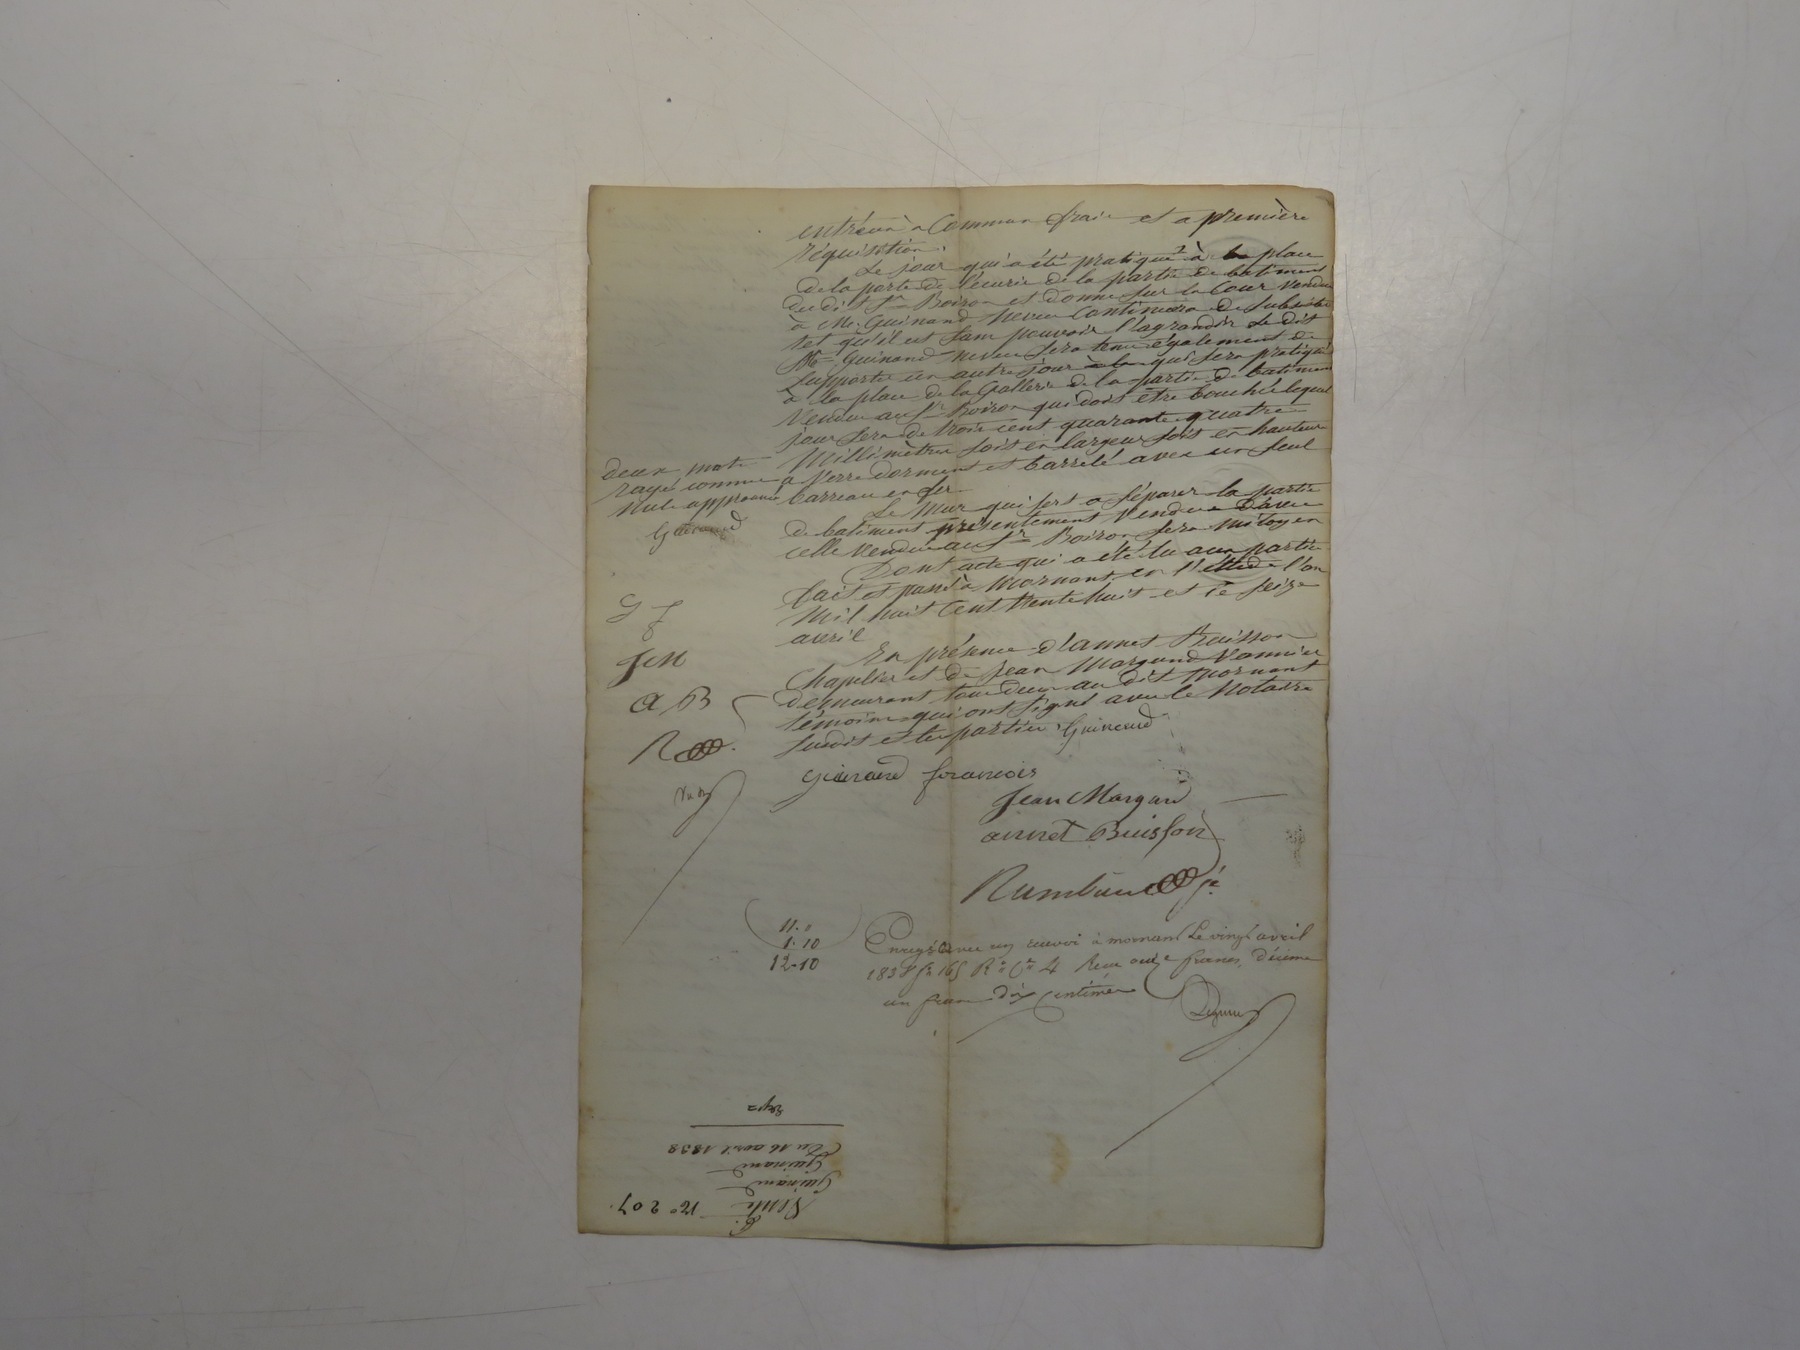 entrée à Commun frais et a première
réquisition.
Le jour qui a été pratiqué à la place
de la porte de l'écurie de la partie de batiment
du dit Sr Boiron et donne sur la Cour vendue
à Mr Guinand neveu Continuera de Subsister
tel qu'il est sans pouvoir l'agrandir Le dit
Mr Guinand neveu sera tenu également de
Supporter un autre jour qui sera pratiqué
à la place de la Gallerie de la partie de batiment
Vendue au Sr Boiron qui doit être bouchée lequel
jour sera de trois cent quarante quatre
Millimètres soit en largeur soit en hauteur
a Verre dormant et barrelé avec un seul
barreau en fer
Le Mur qui sert a séparer la partie
de batiment présentement Vendue d'avec
celle vendue au Sr Boiron sera mitoyen
Dont acte qui a été lu aux parties
fait et passé à Mornant en l'étude l'an
Mil huit Cent trente huit et le seize
avril
En présence d'annet Buisson
Chapelier et de Jean Margand Vannier
demeurant tous deux au dit Mornant
témoins qui ont signé avec le Notaire
susdit et les parties
deux mots
rayés comme
nuls approuvé
Guinand
G f
J M
a B
R
Guinand
Guinand francois
Jean Margand
annet Buisson
11. "
1. 10
12-10
Enregistré au reçu à mornant Le vingt avril
1838 fo 165 Ro Ce 4 Reçu onze francs, décime
un franc dix Centimes
No 207.
Vente
Guinand
Guinand
Du 16 avril 1838
Exp